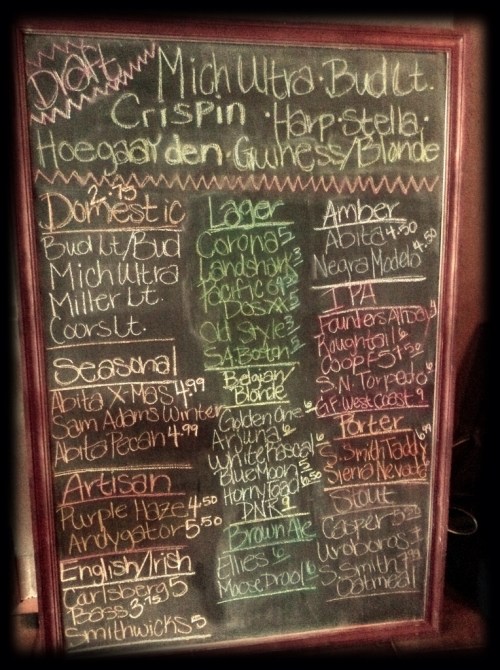 Draft
Mich Ultra · Bud Lt.
Crispin · Harp · Stella ·
Hoegaarden · Guiness/Blonde
Domestic 2.75
Bud Lt/Bud
Mich Ultra
Miller Lt.
Coors Lt.
Seasonal
Abita X-Mas 4.99
Sam Adams Winter
Abita Pecan 4.99
Artisan
Purple Haze 4.50
Andygator 5.50
English/Irish
Carlsberg 5
Bass 3.75
Smithwicks 5
Lager
Corona 5
Landshark 3
Pacifico
Dos XX 5
Old Style 3
S.A. Boston 5
Belgian
Blonde
Golden One 6
Arjuna 6
White Rascal 6
Blue Moon 5
Horny Toad 6.50
DNR 9
Brown Ale
Ellies 6
Moose Drool 6
Amber
Abita 4.50
Negra Modelo 4.50
IPA
Founders All Day
Roughtail 6
Coop F5 7.50
S.N. Torpedo 6
G.F. West Coast 9
Porter
S. Smith Taddy
Sierra Nevada
Stout
Casper
Uroboros
S. Smith
Oatmeal